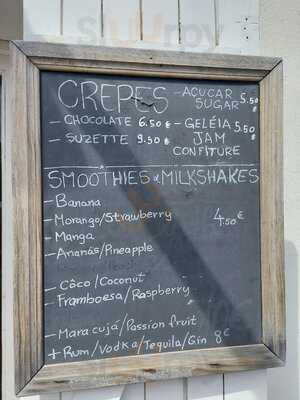 CREPES
- AÇUCAR
SUGAR 5.50 €
- CHOCOLATE 6.50 €
- GELÉIA 5.50 €
JAM
CONFITURE
- SUZETTE 9.50 €
SMOOTHIES & MILKSHAKES
- Banana
- Morango/Strawberry 4.50 €
- Manga
- Ananás/Pineapple
- Côco/Coconut
- Framboesa/Raspberry
- Maracuja/Passion fruit
+ Rum/Vodka/Tequila/Gin 8€